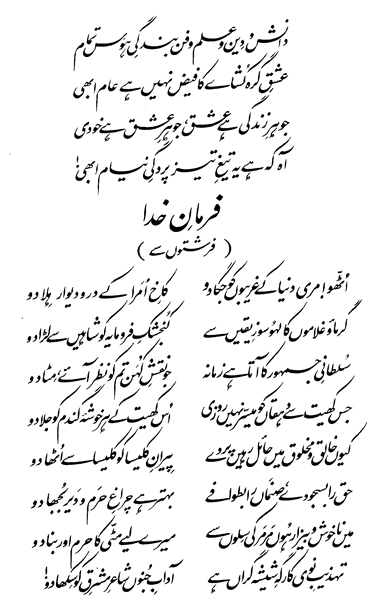 دانش و دین و علم و فن بندگیِ ہوس تمام
عشقِ گرہ کشاے کا فیض نہیں ہے عام ابھی
جوہرِ زندگی ہے عشق، جوہرِ عشق ہے خودی
آہ کہ ہے یہ تیغِ تیز پردگیِ نیام ابھی!
فرمانِ خدا
( فرشتوں سے )
اُٹھو! مری دنیا کے غریبوں کو جگا دو کاخِ اُمرا کے در و دیوار ہلا دو
گرماؤ غلاموں کا لہو سوزِ یقیں سے کُنجشکِ فرومایہ کو شاہیں سے لڑا دو
سُلطانیِ جمہور کا آتا ہے زمانہ جو نقشِ کُہن تم کو نظر آئے، مٹا دو
جس کھیت سے دہقاں کو میسر نہیں روزی اُس کھیت کے ہر خوشۂ گندم کو جلا دو
کیوں خالق و مخلوق میں حائل رہیں پردے پیرانِ کلیسا کو کلیسا سے اُٹھا دو
حق را بسجودے، صنماں را بطوافے بہتر ہے چراغِ حرم و دَیر بُجھا دو
میں ناخوش و بیزار ہوں مَرمَر کی سِلوں سے میرے لیے مٹی کا حرم اور بنا دو
تہذیبِ نوی کارگہِ شیشہ گراں ہے آدابِ جنوں شاعرِ مشرق کو سکھا دو!